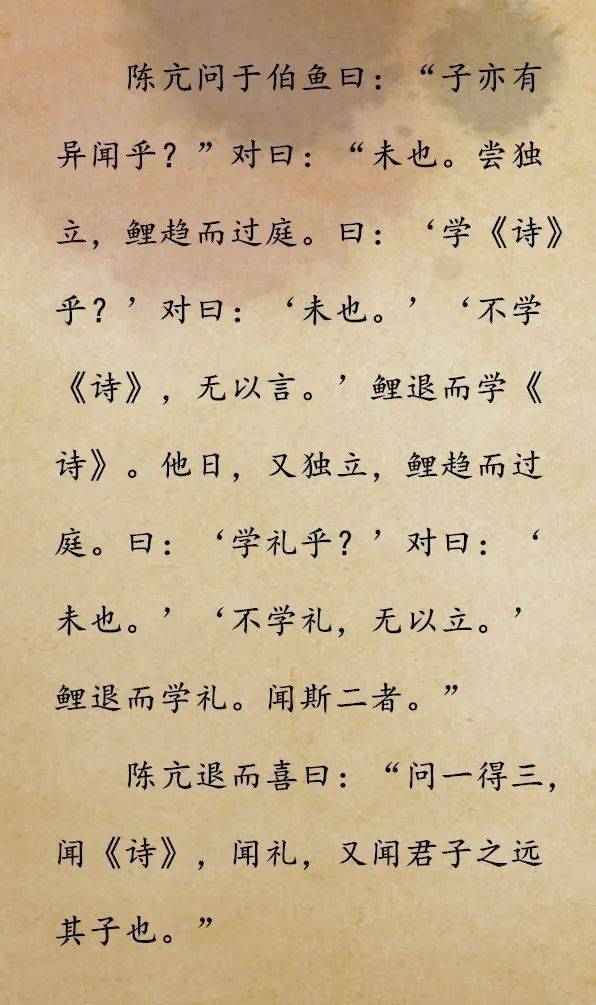 陈亢问于伯鱼曰：“子亦有
异闻乎？”对曰：“未也。尝独
立，鲤趋而过庭。曰：‘学《诗》
乎？’对曰：‘未也。’‘不学
《诗》，无以言。’鲤退而学《
诗》。他日，又独立，鲤趋而过
庭。曰：‘学礼乎？’对曰：‘
未也。’‘不学礼，无以立。’
鲤退而学礼。闻斯二者。”
陈亢退而喜曰：“问一得三，
闻《诗》，闻礼，又闻君子之远
其子也。”